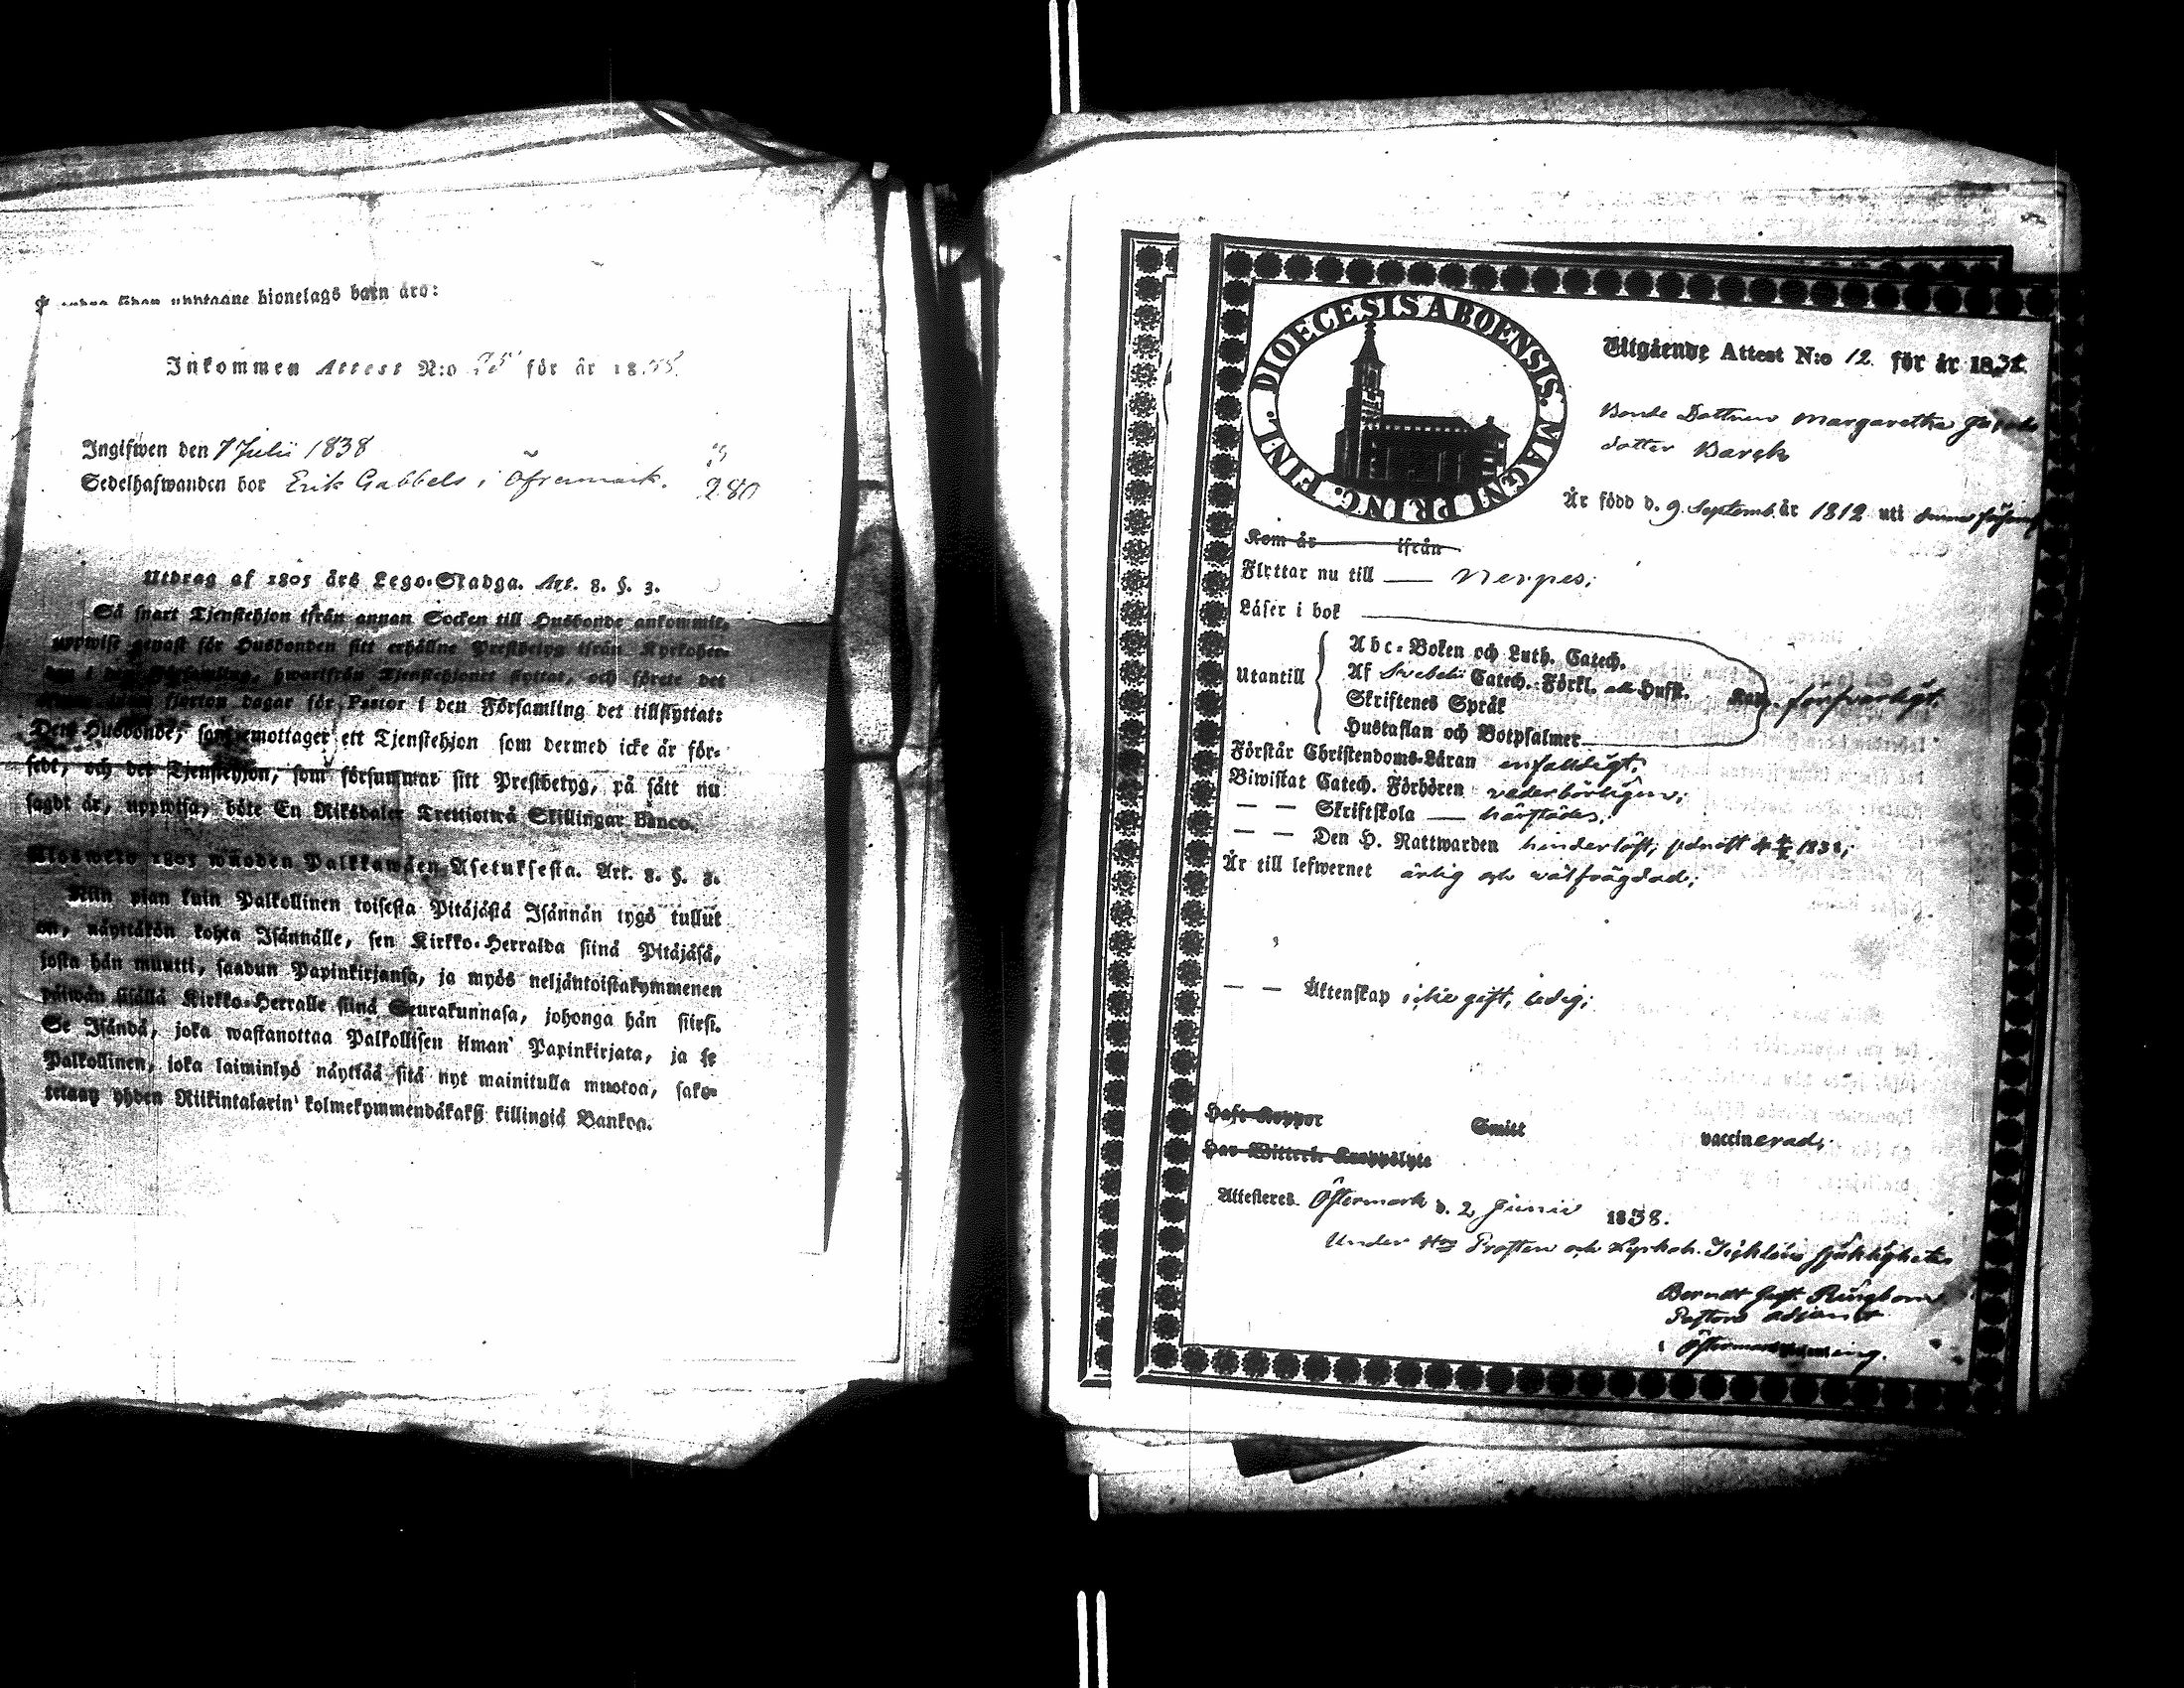 upptagne hionelags barn äro:
Inkommen Attest N:o för år 18
Ingifwen den 7 Julii 1838
Sedelhafwanden bor Erik Gabbels i Öfvermark. 280
Utdrag af 1805 års Lego-Stadga. Art. 8. §. 3.
Så snart Tjenstehjon ifrån annan Socken till Husbonde ankommit,
uppwise genast för Husbonden sitt erhållne Prestbetyg ifrån Kyrkoher-
den i den Församling, hwarifrån Tjenstehjonet flyttat, och förete det
fjorton dagar för Pastor i den Församling det tillflyttat:
Den Husbonde, som emottager ett Tjenstehjon som dermed icke är för-
sedt, och det Tjenstehjon, som försummar sitt Prestbetyg, på sätt nu
sagdt är, uppwisa, böte En Riksdaler Trettiotwå Skillingar Banco.
1805 wuoden Palkkawäen-Asetuksesta. Art. 8. §. 3.
Niin pian kuin Palkollinen toisesta Pitäjästä Isännän tygö tullut
on, näyttäkön kohta Isännälle, sen Kirkko-Herralda siinä Pitäjäsä,
josta hän muutti, saadun Papinkirjansa, ja myös neljäntoistakymmenen
päiwän sisällä Kirkko-Herralle siinä Seurakunnasa, johonga hän siirsi.
Se Isändä, joka wastanottaa Palkollisen ilman' Papinkirjata, ja se
Palkollinen, joka laiminlyö näyttää sitä nyt mainitulla muotoa, sako-
tetaan yhden Riikintalarin' kolmekymmendäkaksi killingiä Bankoa.
DIOECESIS ABOENSIS. MAGNI PRINC. FINL.
Utgående Attest N:o 12. för år 1838.
Bonde Dottren Margaretha Jacobs
dotter Barck
Är född d. 9 Septemb. år 1812 uti denna församl
Kom år ifrån
Flyttar nu till — Nerpes;
Läser i bok
Utantill
Abc-Boken och Luth. Catech.
Af Svebelii Catech. Förkl. Husk.
Skriftenes Språk
Hustaflan och Botpsalmer
försvarligt.
Förstår Christendoms-Läran enfaldigt;
Biwistat Catech. Förhören vederbörligen;
— — Skriftskola — härstädes;
— — Den H. Nattwarden hinderlöst, sednast 1838;
Är till lefwernet ärlig och wälfrägdad;
— — Äktenskap icke gift, ledig;
Haft Koppor Smitt vaccinerad;
Har Witterl. Kroppslyte
Attesteres. Östermark d. 2 Junii 1838.
Under Hrr Prosten och Kyrkoh. sjuklighet
Berndt Gust. Ringbom
Pastors adjunct
i Östermark